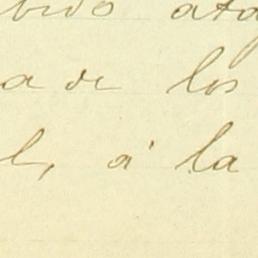 bido ata
a de los
l, á la